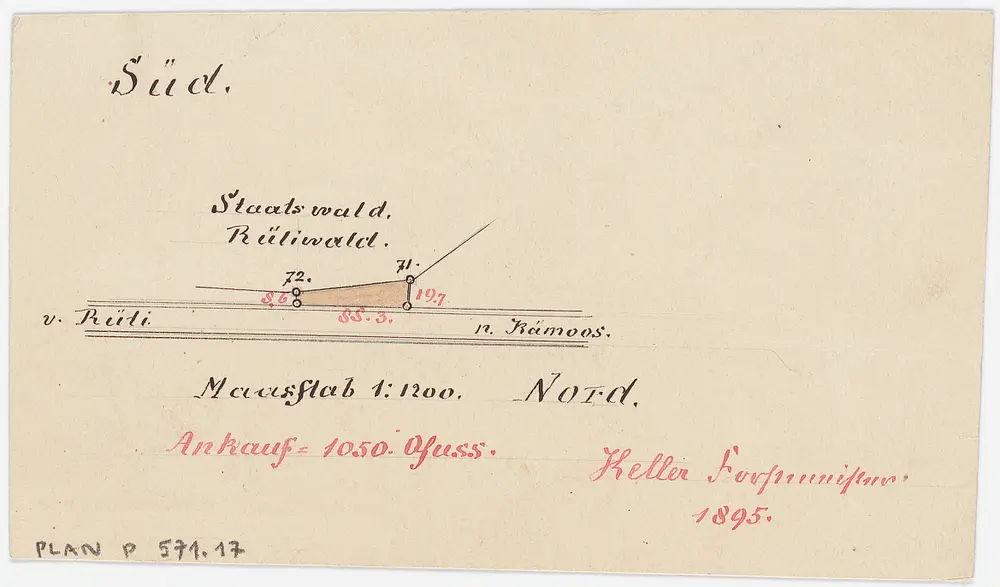 Süd.
Staatswald.
Rütiwald.
71.
72.
8,6
19.7
88.3.
v. Rüti
n. Kämoos.
Maasstab 1:1200.
Nord.
Ankauf = 1050. Qfuss.
Keller Forstmeister.
1895.
PLAN P 571.17